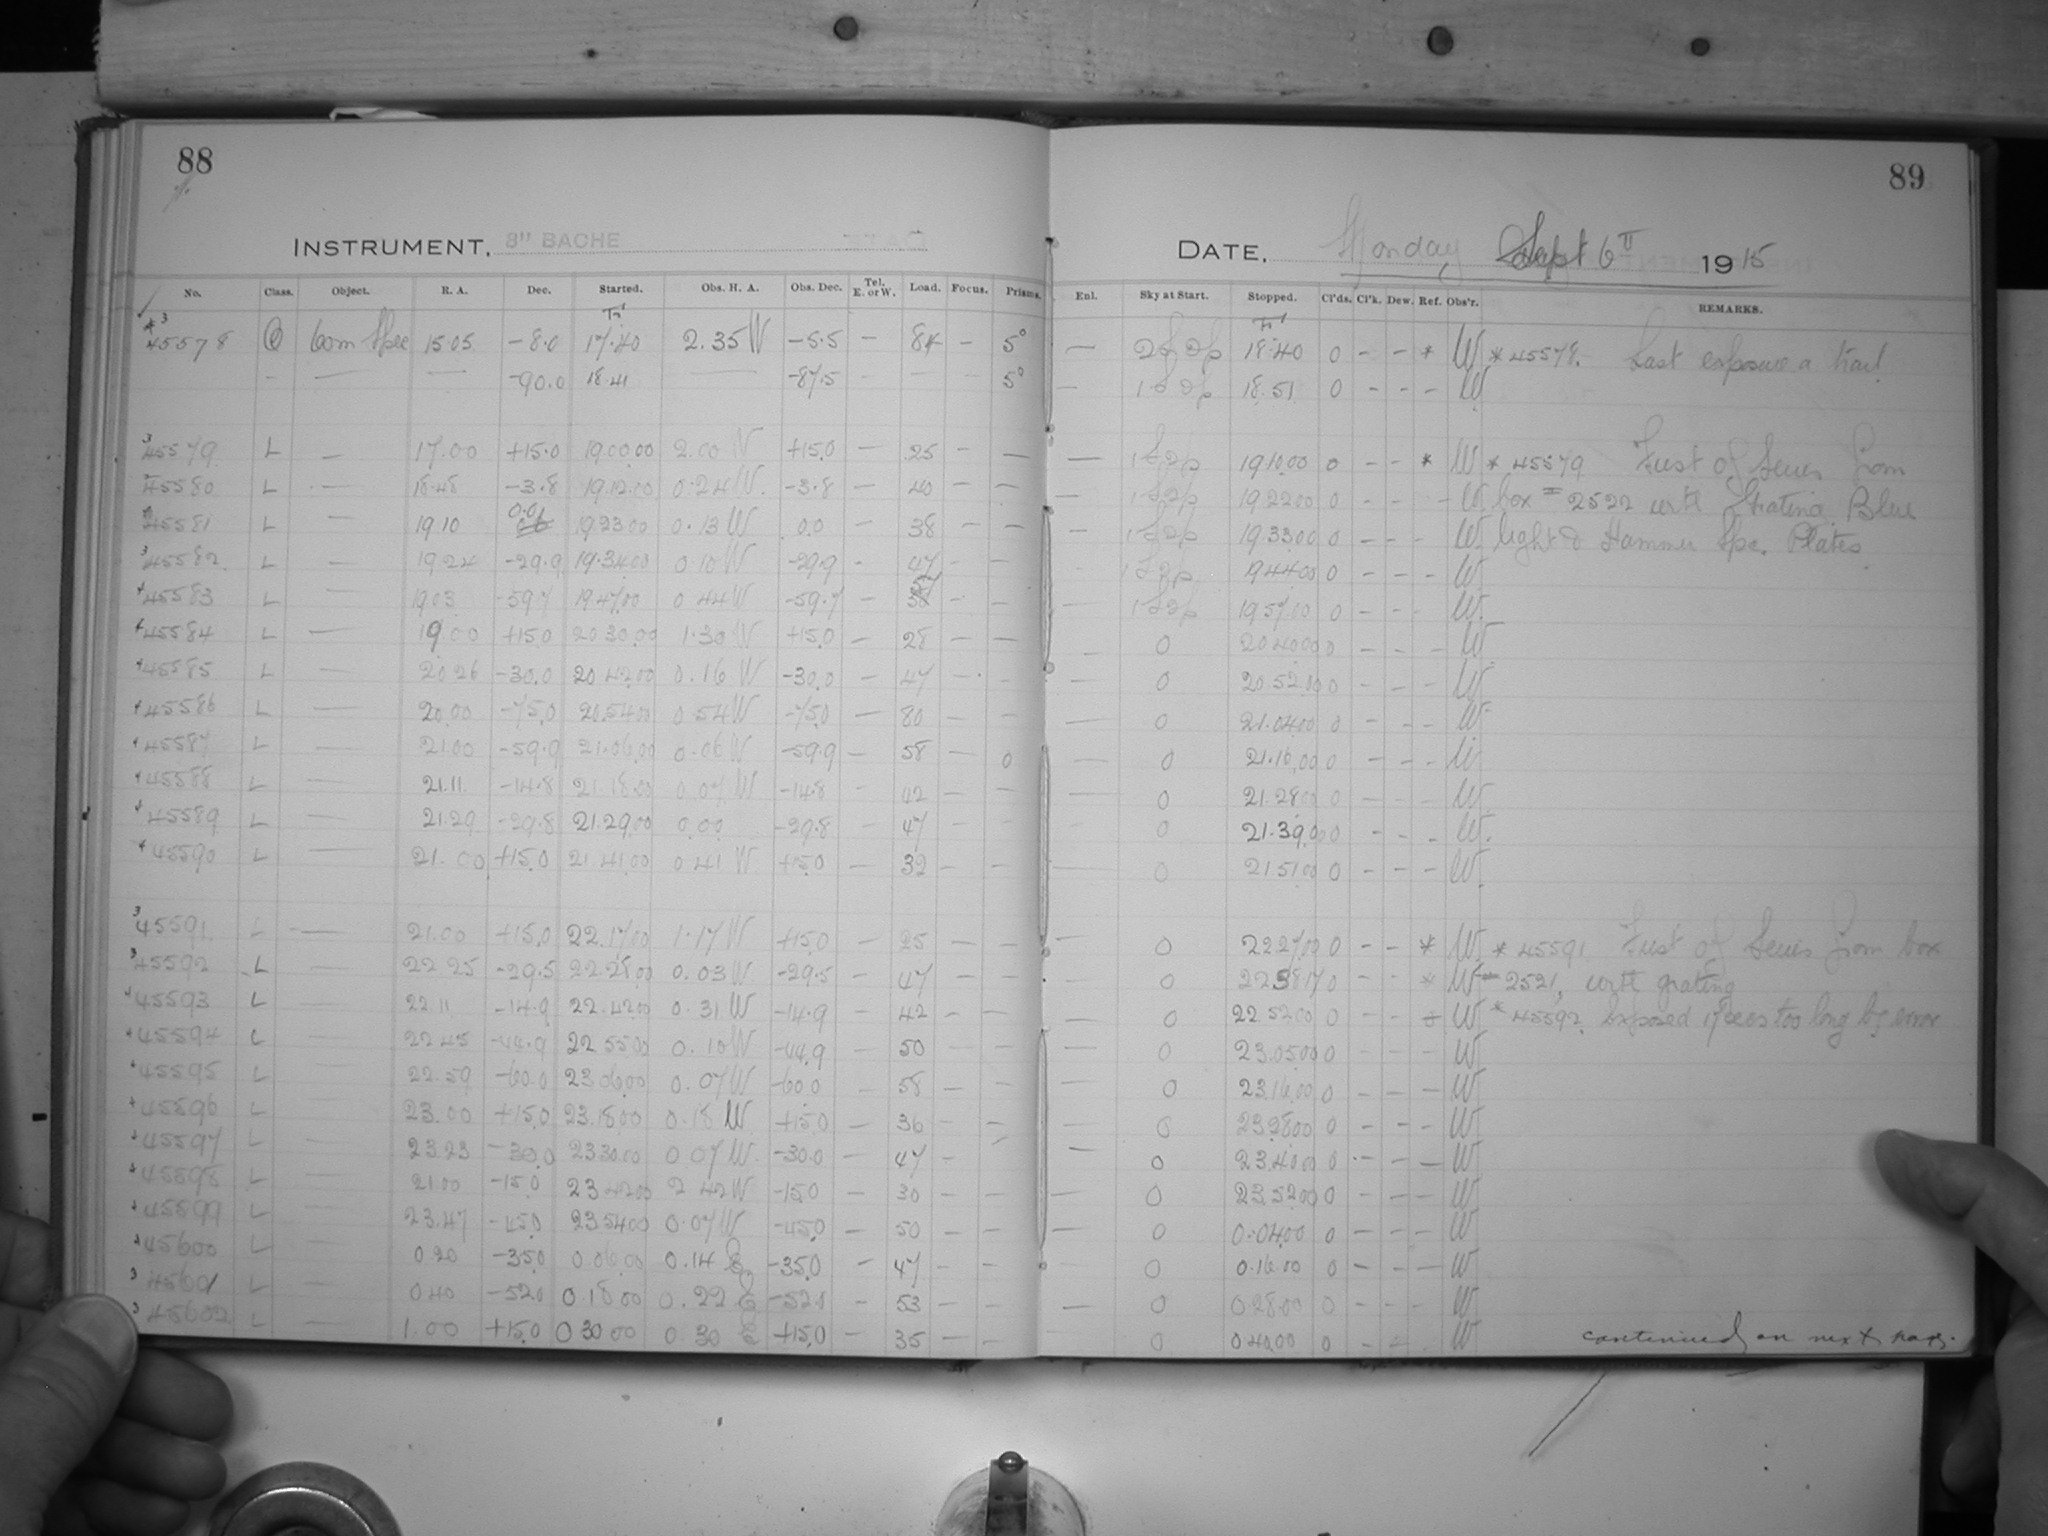 88
89
INSTRUMENT, 8" BACHE
DATE, Monday Sept 6 1915
No. Class. Object. R. A. Dec. Started. Obs. H. A. Obs. Dec. Tel. E. or W. Load. Focus. Prisms. Enl. Sky at Start. Stopped. Cl'ds. Cl'k. Dew. Ref. Obs'r. REMARKS.
45578 15.05 -8.0 17.40 2.35 W -5.5 — 84 — 5° — 18.40 0 - - * W * 45578. Last exposure a trail
- — — -90.0 18.41 — -87.5 5° — 18.51 0 - - - W
45579 L — 17.00 +15.0 19.00.00 2.00 W +15.0 — 25 — — — 19.10.00 0 - - * W * 45579 First of Series from
45580 L — 18.48 -3.8 19.12.00 0.24 W. -3.8 — 40 — — — 19.22.00 0 - - - W box = 2522 with Grating. Blue
45581 L — 19.10 0.0 19.23.00 0.13 W 0.0 - 38 — — — 19.33.00 0 - - - W light & Hammer Spe. Plates
45582 L — 19.24 -29.9 19.34.00 0.10 W -29.9 — 47 — — 19.44.00 0 - - - W
45583 L — 19.03 -59.7 19.47.00 0.44 W -59.7 — — — — 19.57.00 0 - - - W
45584 L — 19.00 +15.0 20.30.00 1.30 W +15.0 — 28 — — — 0 20.40.00 0 - - - W
45585 L — 20.26 -30.0 20.42.00 0.16 W -30.0 — 47 — — — 0 20.52.00 0 - - - W
45586 L — 20.00 -75.0 20.54.00 0.54 W -75.0 — 80 — — — 0 21.04.00 0 - - - W
45587 L — 21.00 -59.9 21.06.00 0.06 W -59.9 — 58 — 0 — 0 21.16.00 0 - - - W
45588 L — 21.11. -14.8 21.18.00 0.07 W -14.8 - 42 — — — 0 21.28.00 0 - - - W
45589 L — 21.29. -29.8 21.29.00 0.00 -29.8 - 47 — — — 0 21.39.00 0 - - - W.
45590 L — 21.00 +15.0 21.41.00 0.41 W +15.0 — 32 — — — 0 21.51.00 0 - - - W.
45591. L — 21.00 +15.0 22.17.00 1.17 W +15.0 — 25 — — — 0 22.27.00 0 - - * W. * 45591 First of Series from box
45592 L — 22.25 -29.5 22.28.00 0.03 W -29.5 — 47 — — — 0 22.38.17 0 - - * W = 2521, with grating
45593 L — 22.11 -14.9 22.42.00 0.31 W -14.9 — 42 — — — 0 22.52.00 0 - - W * 45592. Exposed 17 secs too long by error
45594 L — 22.45 -44.9 22.55.00 0.10 W -44.9 — 50 — — — 0 23.05.00 0 - - - W
45595 L — 22.59 -60.0 23.06.00 0.07 W -60.0 — 58 — — — 0 23.16.00 0 - - - W
45596 L — 23.00 +15.0 23.18.00 0.18 W +15.0 — 36 — — — 0 23.28.00 0 - - - W
45597 L — 23.23 -30.0 23.30.00 0.07 W. -30.0 — 47 - — — 0 23.40.00 0 - - - W
45598 L — 21.00 -15.0 23.42.00 2.42 W -15.0 — 30 — — — 0 23.52.00 0 - - - W
45599 L — 23.47 -45.0 23.54.00 0.07 W -45.0 — 50 — — — 0 0.04.00 0 - - - W
45600 L — 0.20 -35.0 0.06.00 0.14 E. -35.0 — 47 — — 0 0.16.00 0 - - - W
45601 L — 0.40 -52.0 0.18.00 0.22 E -52.0 — 53 — — — 0 0.28.00 0 - - - W
45602. L — 1.00 +15.0 0.30.00 0.30 E +15.0 — 35 — — 0 0.40.00 0 - - - W continued on next page.